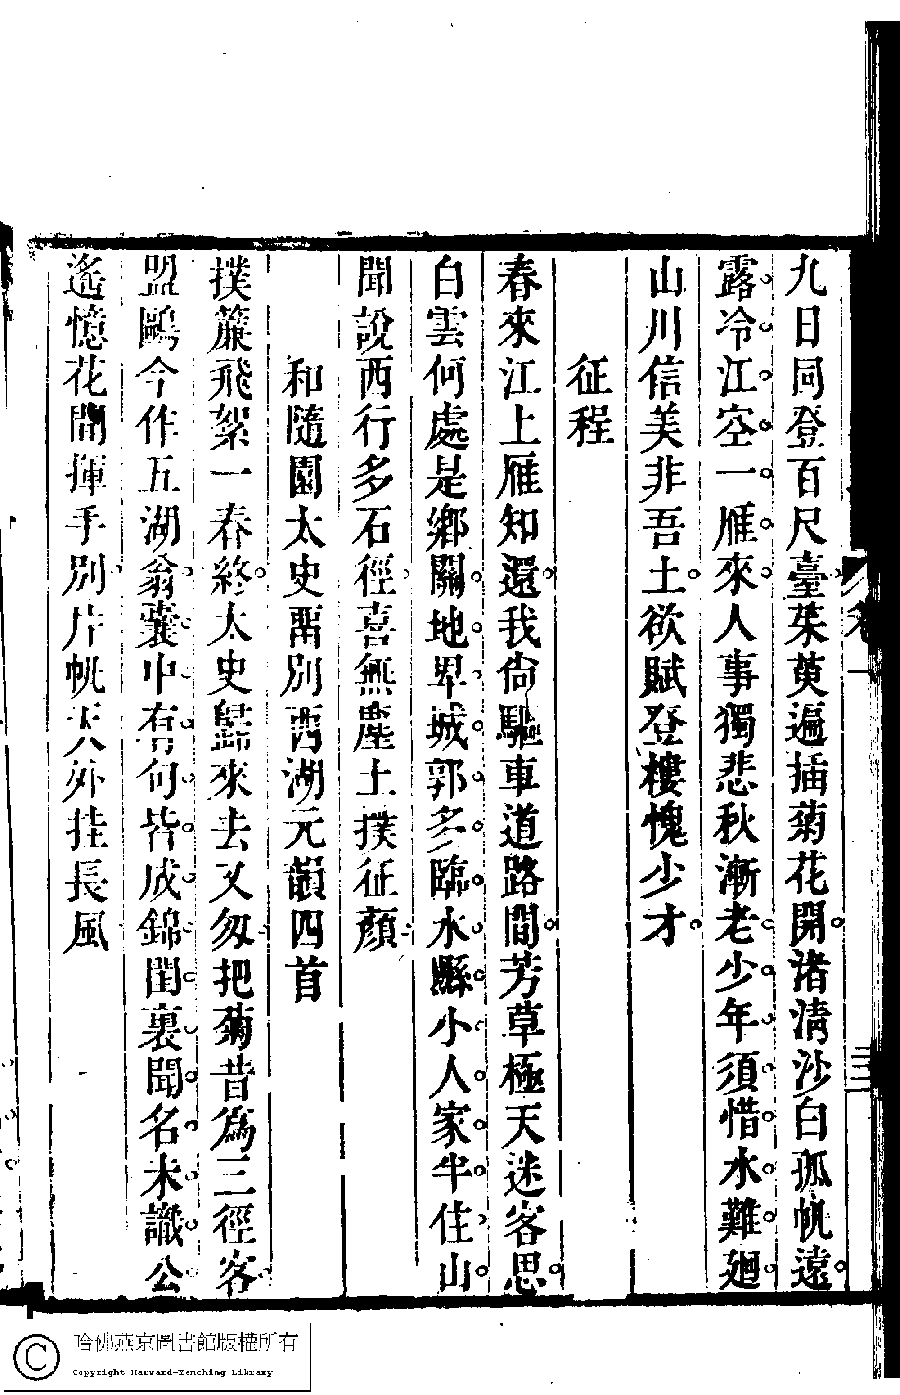 九日同登百尺臺茱萸遍插菊花開渚清沙白孤帆遠
露冷江空一雁來人事獨悲秋漸老少年須惜水難廻
山川信美非吾土欲賦登樓愧少才
征程
春來江上雁知還我尙驅車道路間芳草極天迷客思
白雲何處是鄉關地卑城郭多臨水縣小人家半住山
聞說西行多石徑喜無塵土撲征顏
和隨園太史畱別西湖元韻四首
撲簾飛絮一春終太史歸來去又匆把菊昔爲三徑客
盟鷗今作五湖翁囊中有句皆成錦閨裏聞名未識公
遙憶花間揮手別片帆天外挂長風
卷一
三
哈佛燕京圖書館版權所有
Copyright Harvard-Yenching Library